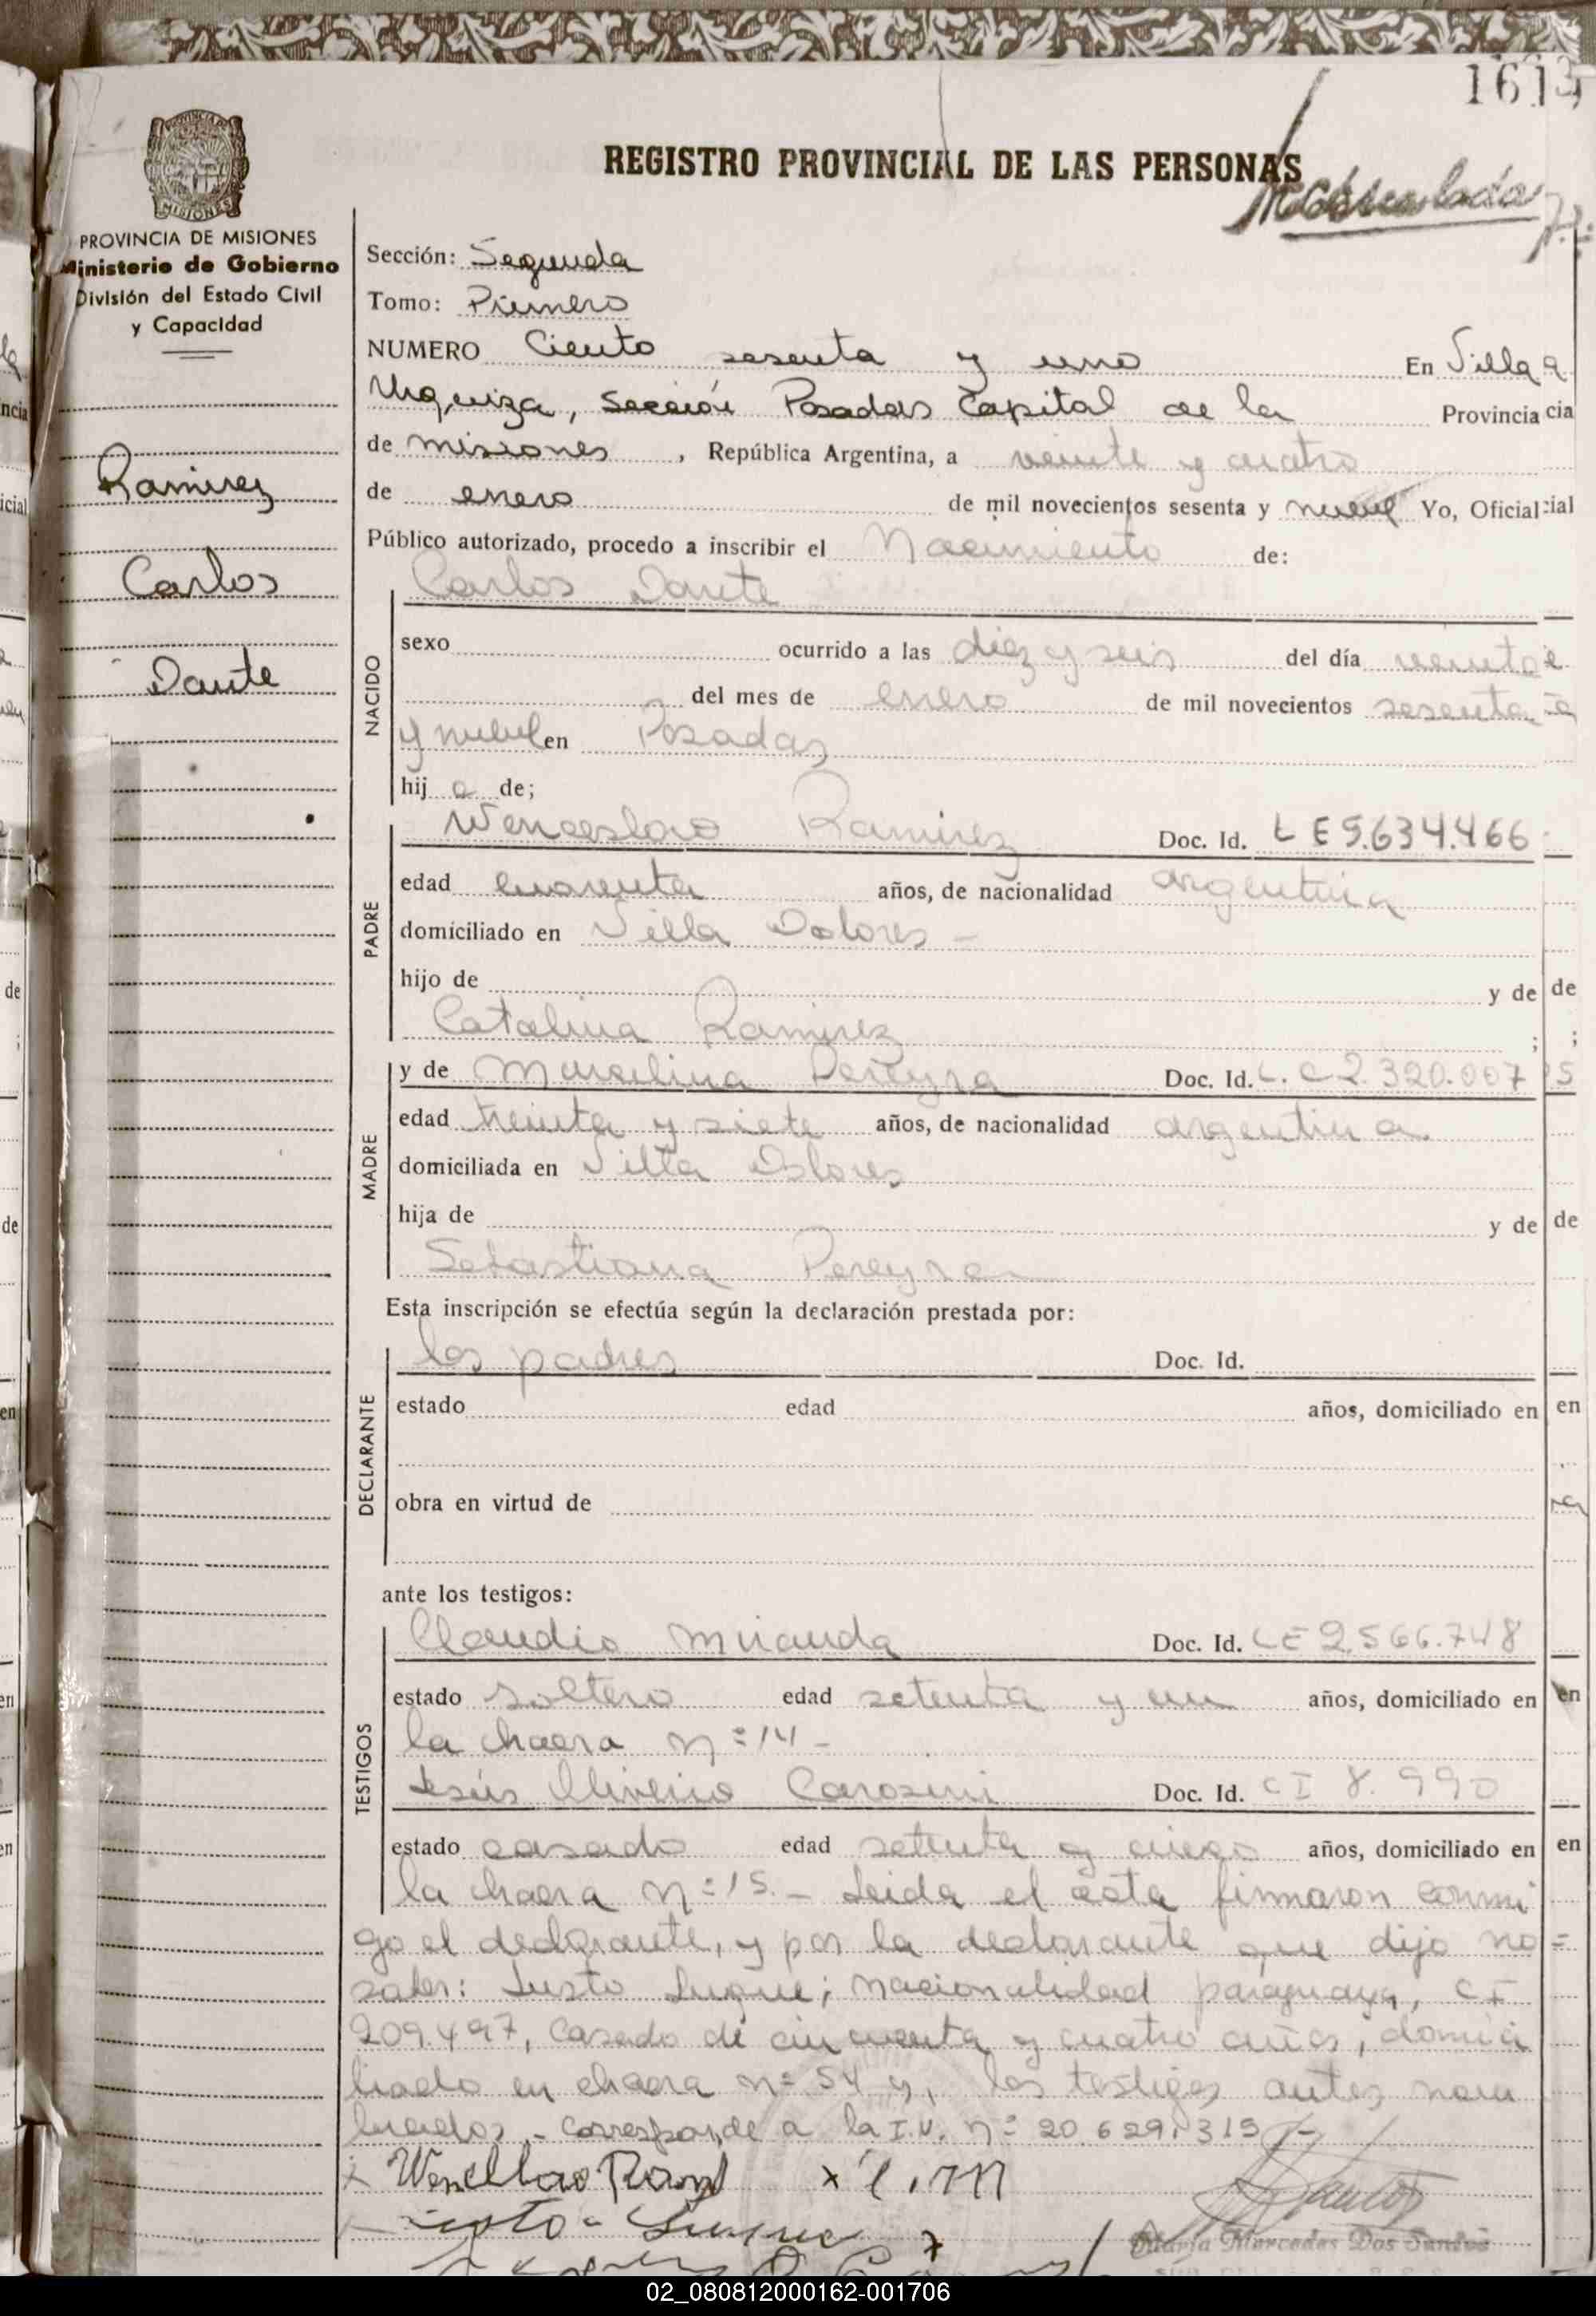 161
REGISTRO PROVINCIAL DE LAS PERSONAS
PROVINCIA DE MISIONES
Ministerio de Gobierno
División del Estado Civil
y Capacidad
Ramirez
Carlos
Dante
Sección: Segunda
Tomo: Primero
NUMERO Ciento sesenta y uno En Villa
Urquiza, Sección Posadas Capital de la Provincia
de misiones, República Argentina, a veinte y cuatro
de enero de mil novecientos sesenta y nueve Yo, Oficial
Público autorizado, procedo a inscribir el Nacimiento de:
Carlos Dante
NACIDO
sexo ocurrido a las diez y seis del día veinte
del mes de enero de mil novecientos sesenta
y nueve en Posadas
hij o de;
PADRE
Wenceslao Ramirez Doc. Id. L E 5.634.466
edad cuarenta años, de nacionalidad argentina
domiciliado en Villa Dolores -
hijo de y de
Catalina Ramirez ;
MADRE
y de Marcelina Pereyra Doc. Id. L. C 2.320.007
edad treinta y siete años, de nacionalidad argentina
domiciliada en Villa Dolores
hija de y de
Sebastiana Pereyra
Esta inscripción se efectúa según la declaración prestada por:
DECLARANTE
los padres Doc. Id.
estado edad años, domiciliado en
obra en virtud de
ante los testigos:
TESTIGOS
Claudio Miranda Doc. Id. LE 2.566.748
estado soltero edad setenta y un años, domiciliado en
la chacra nº 14 -
Jesús Carosini Doc. Id. CI 8.990
estado casado edad setenta y años, domiciliado en
la chacra nº 15. - Leida el acta firmaron conmi
go el declarante, y por la declarante que dijo no
saber: Justo Luque; nacionalidad paraguaya, C I
209.497, casado de cincuenta y cuatro años, domici
liado en chacra nº 54 y, los testigos antes nom
brados. - Corresponde a la I.U. nº 20.629.319 -
x Wencellao Ram x
Justo - Luque x
Maria Mercedes Dos Santos
02_080812000162-001706